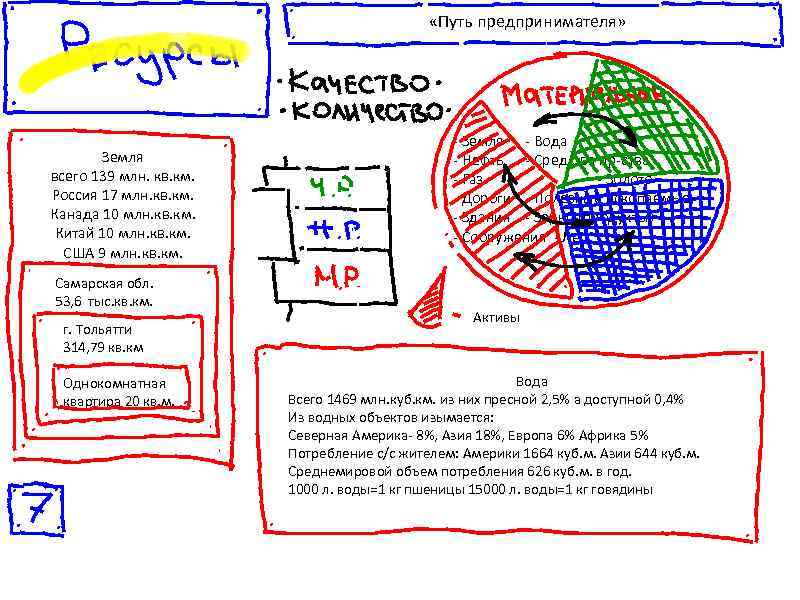 «Путь предпринимателя»
Ресурсы
• Качество •
• Количество •
Материальные
- Земля - Вода
- Нефть
- Газ
- Дороги
- Здания
- Сооружения
Земля
всего 139 млн. кв.км.
Россия 17 млн.кв.км.
Канада 10 млн.кв.км.
Китай 10 млн.кв.км.
США 9 млн.кв.км.
Ч.Р.
Н.Р.
М.Р.
Самарская обл.
53,6 тыс.кв.км.
г. Тольятти
314,79 кв.км
Однокомнатная
квартира 20 кв.м.
- Активы
Вода
Всего 1469 млн.куб.км. из них пресной 2,5% а доступной 0,4%
Из водных объектов изымается:
Северная Америка- 8%, Азия 18%, Европа 6% Африка 5%
Потребление с/с жителем: Америки 1664 куб.м. Азии 644 куб.м.
Среднемировой объем потребления 626 куб.м. в год.
1000 л. воды=1 кг пшеницы 15000 л. воды=1 кг говядины
7